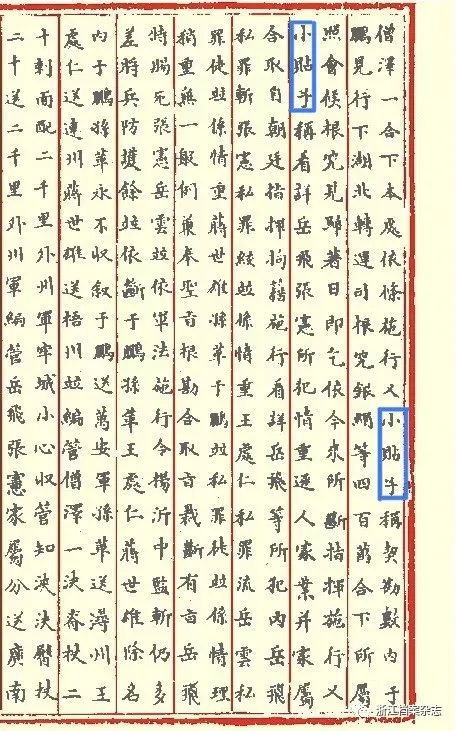 僧澤一合下本處依條施行又小貼子稱契勘數內于
鵬見行下湖北轉運司根究銀絹等四百萬合下所屬
照會候根究見歸著日即乞依今來所斷指揮施行又
小貼子稱看詳岳飛張憲所犯情重逆人家業并家屬
合取自朝廷指揮拘籍施行看詳岳飛等所犯內岳飛
私罪斬張憲私罪絞並係情重王處仁私罪流岳雲私
罪徒並係情重蔣世雄孫革于鵬並私罪徒並係情理
稍重無一般例兼奉聖旨根勘合取旨裁斷有旨岳飛
特賜死張憲岳雲並依軍法施行令楊沂中監斬仍多
差將兵防護餘並依斷于鵬孫革王處仁蔣世雄除名
內于鵬孫革永不收叙于鵬送萬安軍孫革送潯州王
處仁送連州蔣世雄送梧州並編管僧澤一決脊杖二
十刺面配二千里外州軍牢城小心收管知浹決臀杖
二十送二千里外州軍編管岳飛張憲家屬分送廣南
浙江档案杂志